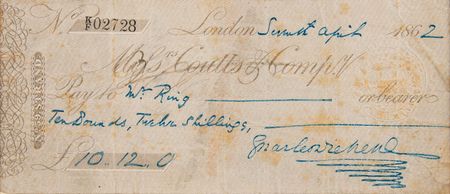 No. K/E 02728 London Seventh April 1862
Messrs. Coutts & Compy.
Pay to Mr Ring or bearer
Ten Pounds, Twelve Shillings,
Charles Dickens
£10..12..0